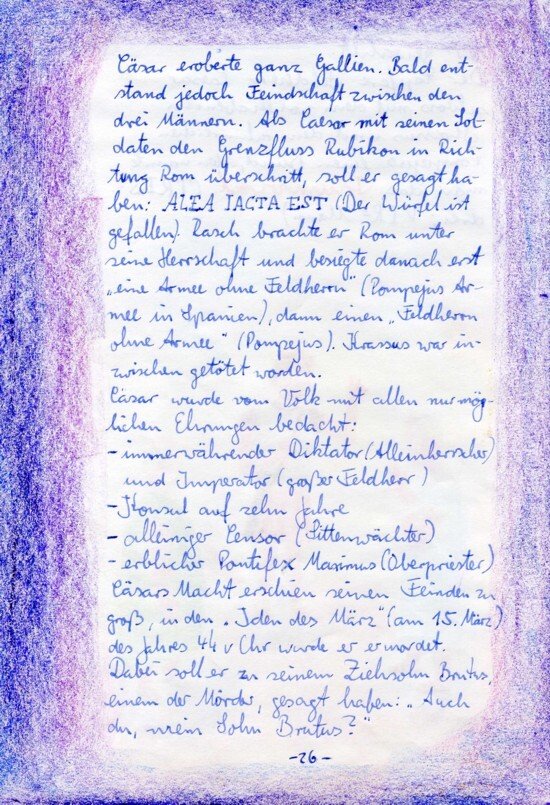 Cäsar eroberte ganz Gallien. Bald ent
stand jedoch Feindschaft zwischen den
drei Männern. Als Caesar mit seinen Sol-
daten den Grenzfluss Rubikon in Rich-
tung Rom überschritt, soll er gesagt ha-
ben: ALEA IACTA EST (Der Würfel ist
gefallen). Rasch brachte er Rom unter
seine Herrschaft und besiegte danach erst
„eine Armee ohne Feldherrn" (Pompejus Ar-
mee in Spanien), dann einen „Feldherrn
ohne Armee" (Pompejus). Krassus war in-
zwischen getötet worden.
Cäsar wurde vom Volk mit allen nur mög-
lichen Ehrungen bedacht:
- immerwährender Diktator (Alleinherrscher)
und Imperator (großer Feldherr)
- Konsul auf zehn Jahre
- alleiniger Censor (Sittenwächter)
- erblicher Pontifex Maximus (Oberpriester)
Cäsars Macht erschien seinen Feinden zu
groß, in den „Iden des März" (am 15. März)
des Jahres 44 v Chr wurde er ermordet.
Dabei soll er zu seinem Ziehsohn Brutus,
einem der Mörder, gesagt haben: „Auch
du, mein Sohn Brutus?"
- 26 -